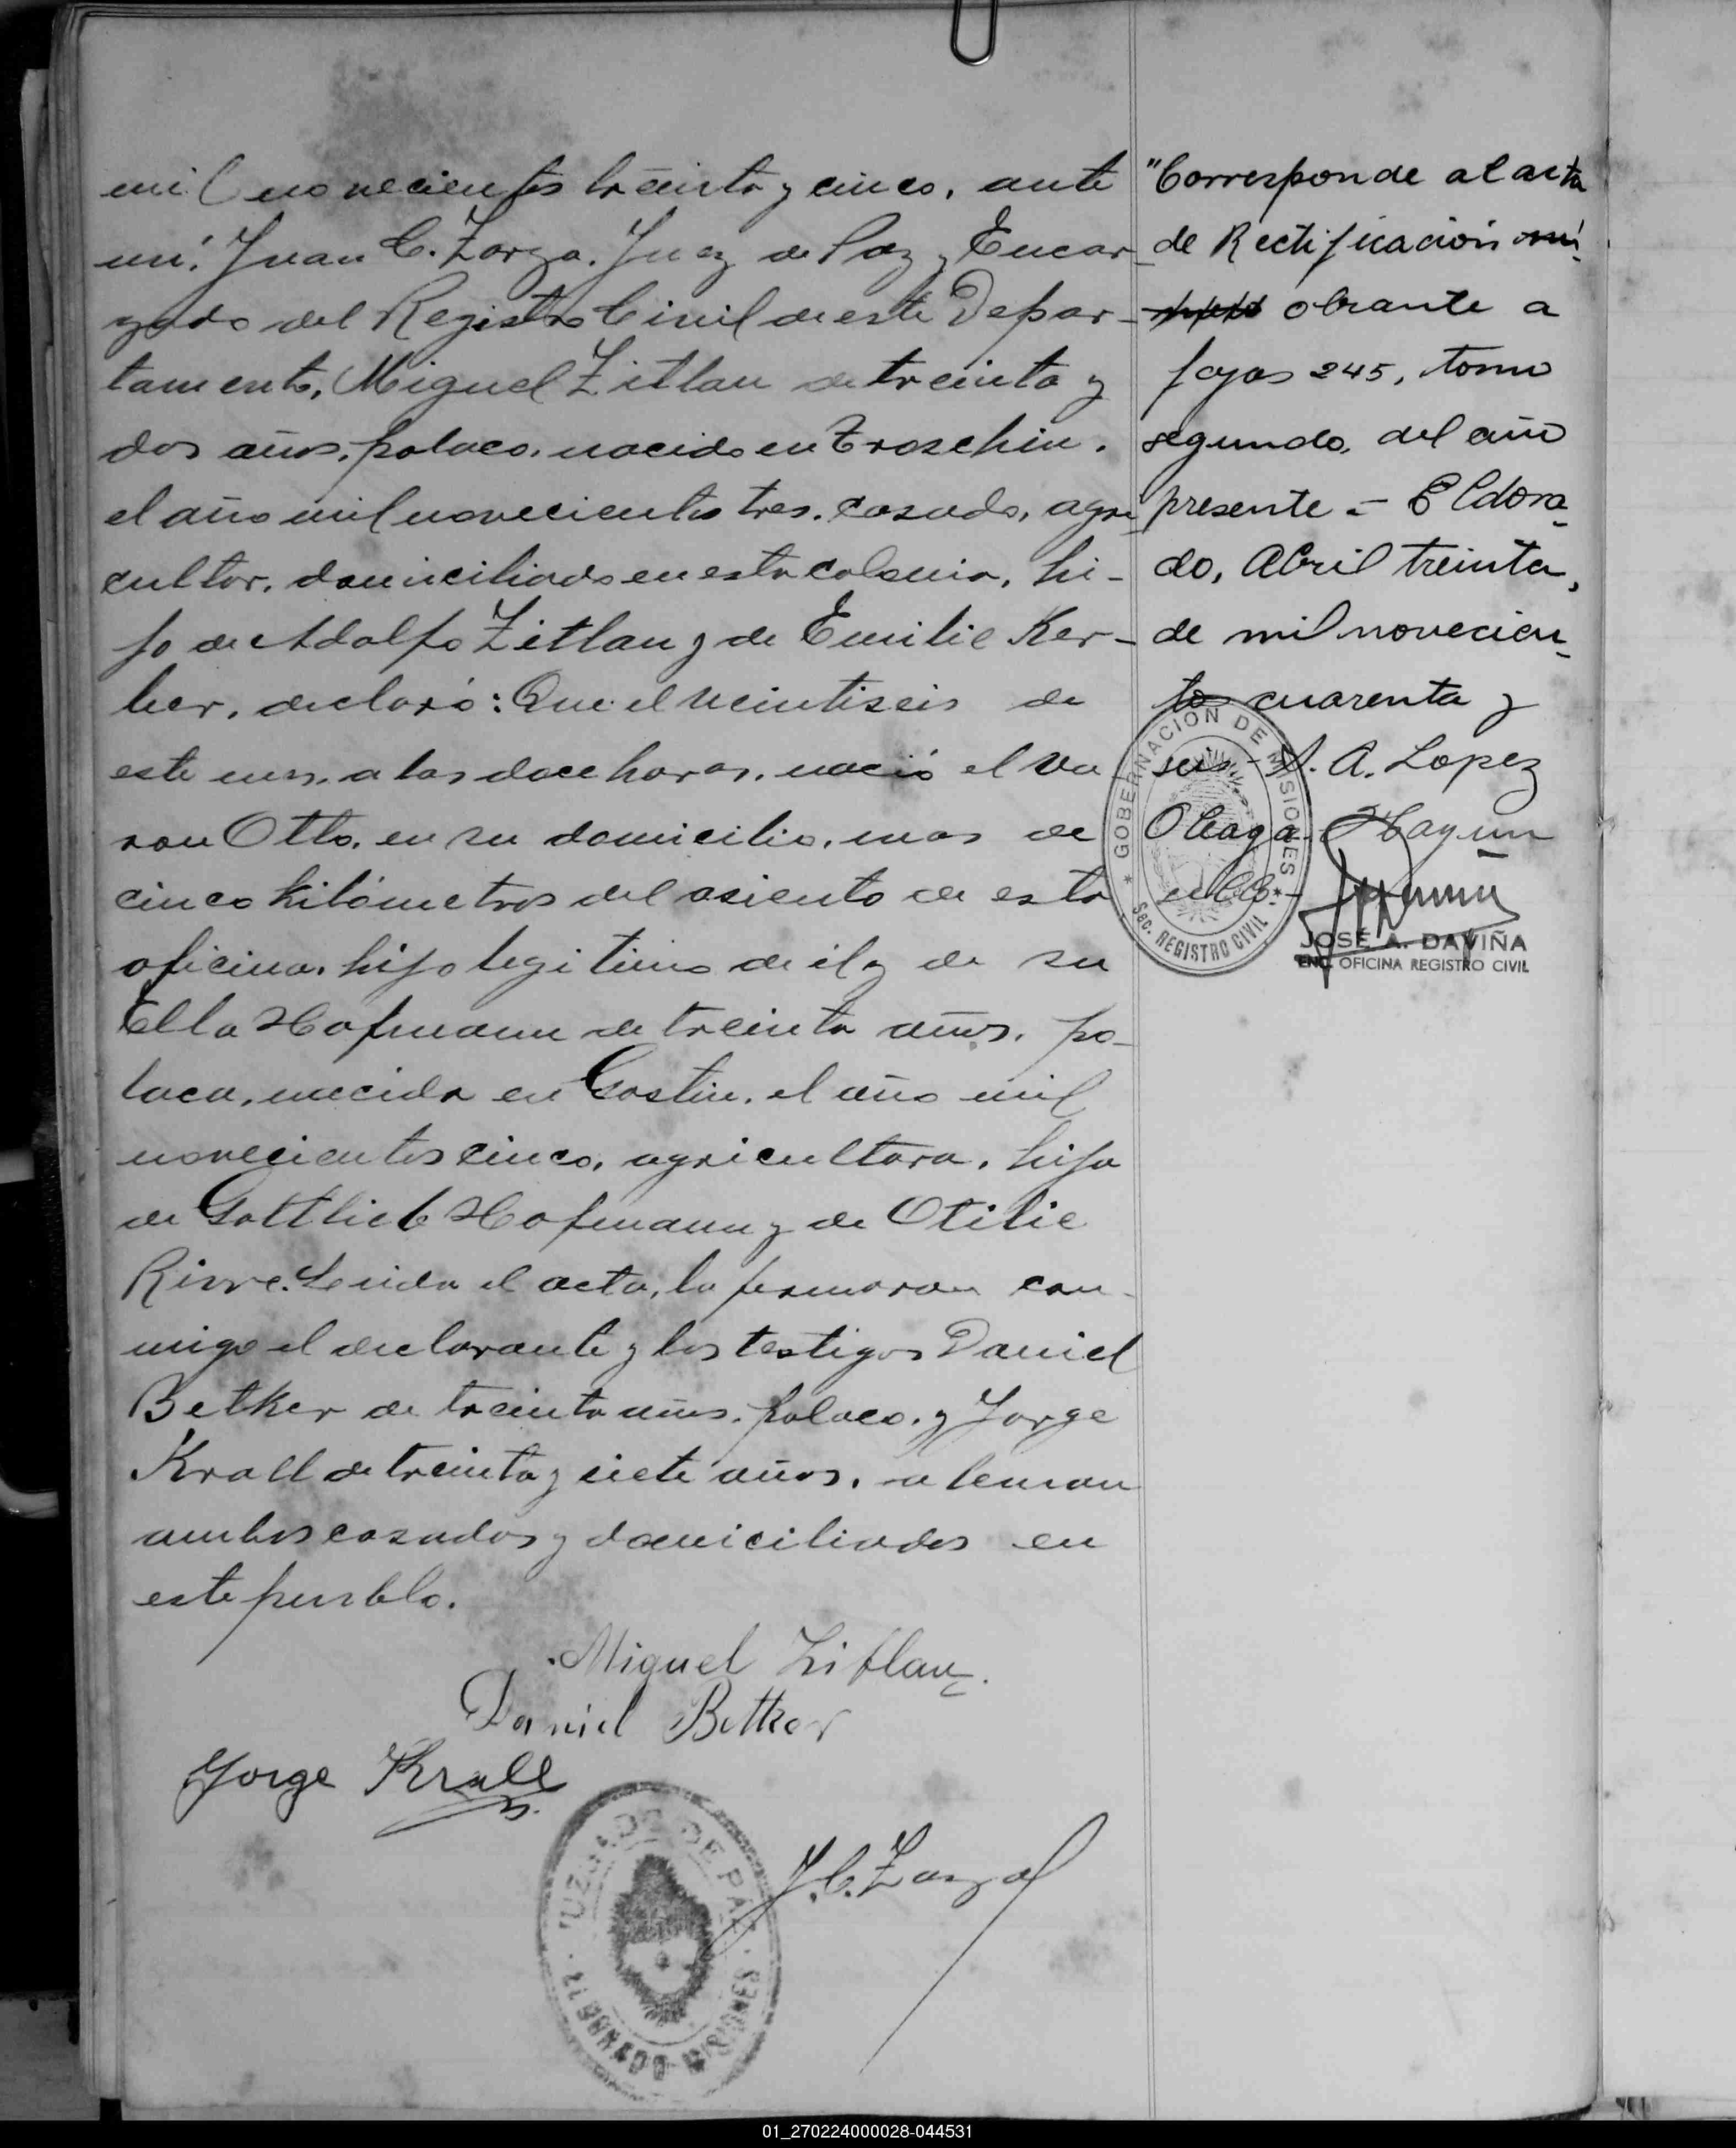 mil novecientos treinta y cinco, ante
mí: Juan C. Zarza. Juez de Paz y Encar-
gado del Registro Civil de este Depar-
tamento, Miguel Zitlau de treinta y
dos años, polaco, nacido en Troschin,
el año mil novecientos tres, casado, agri
cultor, domiciliado en esta colonia, hi-
jo de Adolfo Zitlau y de Emilie Ker-
ber, declaró: Que el veintiseis de
este mes, a las doce horas, nació el va
ron Otto, en su domicilio, mas de
cinco kilómetros del asiento de esta
oficina, hijo legitimo de él y de su
Ella Hofmann de treinta años, po-
laca, nacida en Gostin, el año mil
novecientos cinco, agricultora, hija
de Gottlieb Hofmann y de Otilie
Leida el acta, la firmaron con-
migo el declarante y los testigos Daniel
Betker de treinta años, polaco, y Jorge
Krall de treinta y siete años, aleman
ambos casados y domiciliados en
este pueblo.
Miguel Zitlau
Daniel Betker
Jorge Krall
J. C. Zarza
JUZGADO DE PAZ
ELDORADO MISIONES
"Corresponde al acta
de Rectificación
obrante a
fojas 245, tomo
segundo, del año
presente = Eldora-
do, Abril treinta,
de mil novecien-
to cuarenta y
seis - A. A. Lopez
Oleaga. Hay un
sello. -
GOBERNACION DE MISIONES
SEC. REGISTRO CIVIL
JOSÉ A. DAVIÑA
ENC. OFICINA REGISTRO CIVIL
01_270224000028-044531